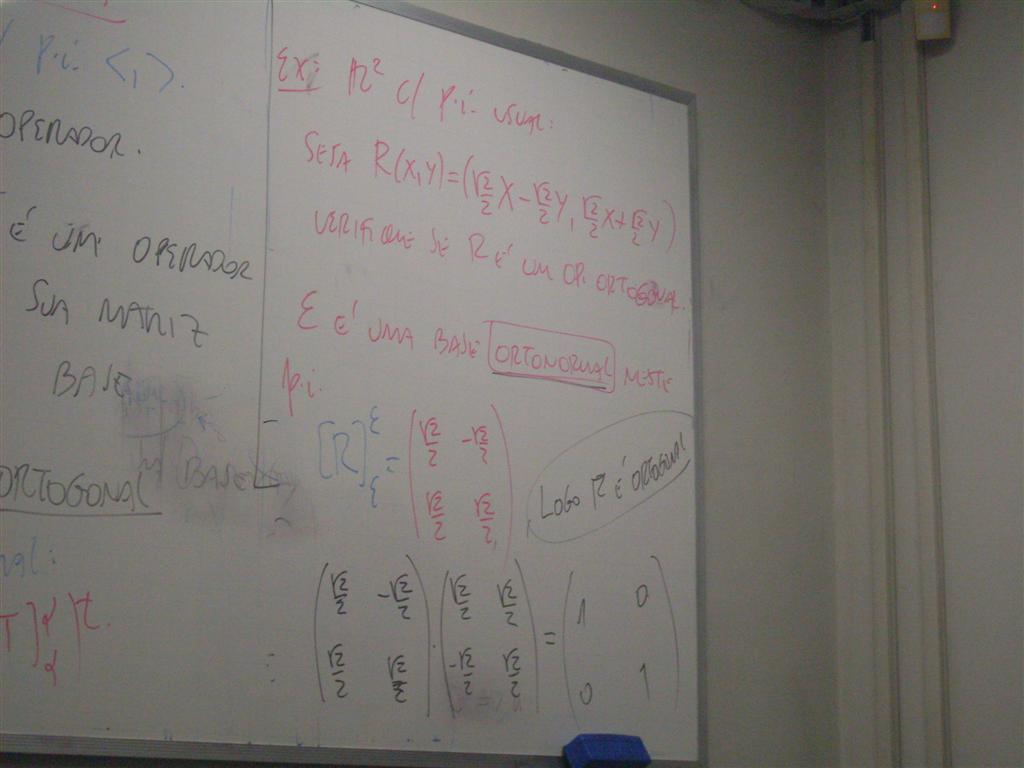 p.i. <,>.
OPERADOR.
É UM OPERADOR
SUA MATRIZ
BASE
ORTOGONAL
T]α α)t.
Ex: R² C/ p.i. USUAL:
SEJA R(X,Y)=(√2/2 X - √2/2 Y, √2/2 X + √2/2 Y)
VERIFIQUE SE R É UM OP. ORTOGONAL.
ε É UMA BASE ORTONORMAL NESTE
p.i.
[R]ε ε = (√2/2 -√2/2
√2/2 √2/2)
LOGO R É ORTOGONAL
(√2/2 -√2/2 √2/2 √2/2) · (√2/2 √2/2 -√2/2 √2/2) = (1 0 0 1)